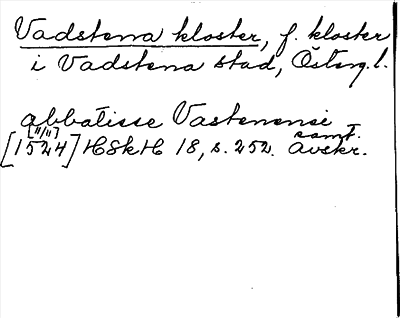 Vadstena kloster, f. kloster
i Vadstena stad, Österg.l.
abbatisse Vastenensi
[11/11] samt.
[1524] HSkH 18, s. 252. Avskr.